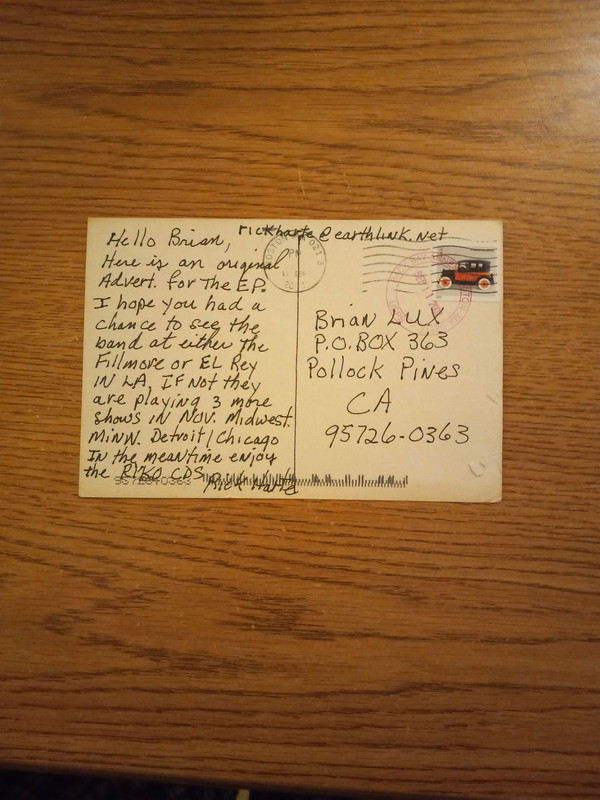 rickharte@earthlink.net
Hello Brian,
Here is an original
Advert. for The EP.
I hope you had a
chance to see the
band at either the
Fillmore or EL Rey
IN LA, IF Not they
are playing 3 more
shows IN NOV. Midwest.
MINN. Detroit/Chicago
In the meantime enjoy
the RYKO CDS
Rick Harte
957260363
BOSTON 021 3
PM
Brian LUX
P.O.BOX 363
Pollock Pines
CA
95726-0363